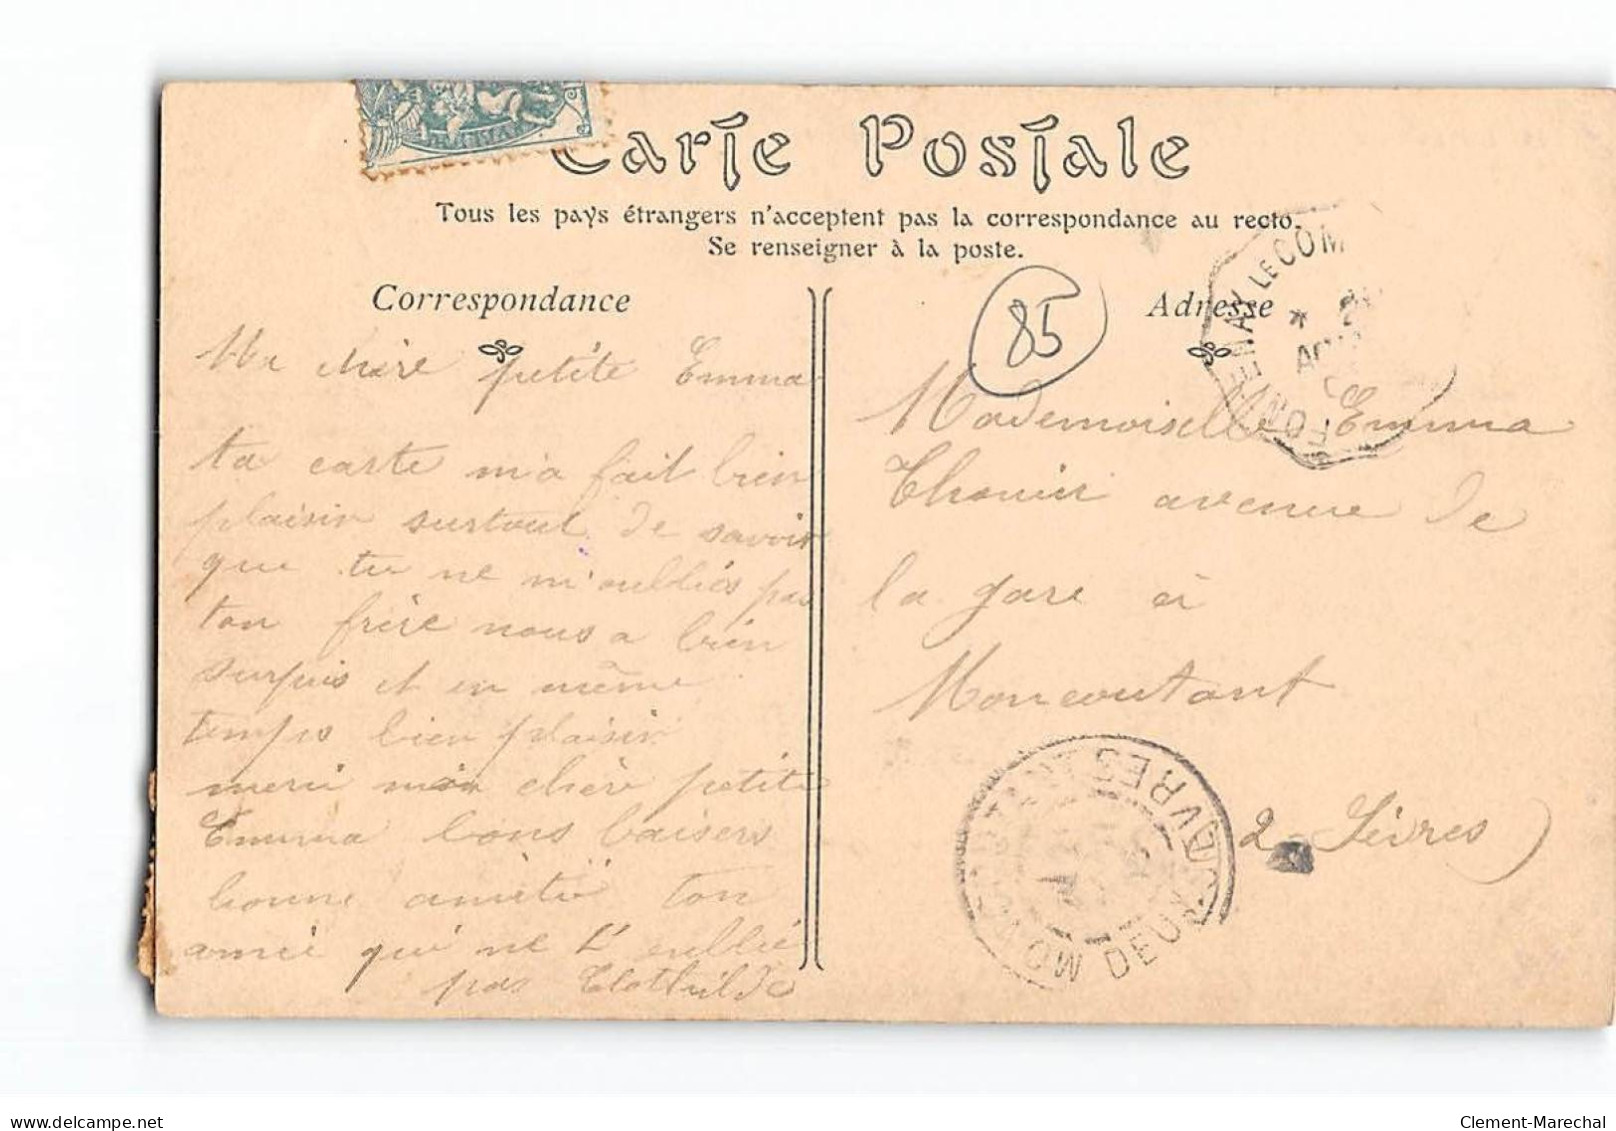 Carte Postale
Tous les pays étrangers n'acceptent pas la correspondance au recto.
Se renseigner à la poste.
Correspondance
Ma chère petite Emma
ta carte m'a fait bien
plaisir surtout de savoir
que tu ne m'oubliés pas
ton frère nous a bien
surpris et en même
temps bien plaisir
merci ma chère petite
Emma bons baisers
bonne amitié ton
amie qui ne t'oublie
pas Clothilde
85
Adresse
Mademoiselle Emma
avenue de
la gare à
Moncoutant
2 Sèvres)
FONTENAY LE COM
AOU
MONCOUTANT
DEUX-SEVRES
delcampe.net
Clement-Marechal